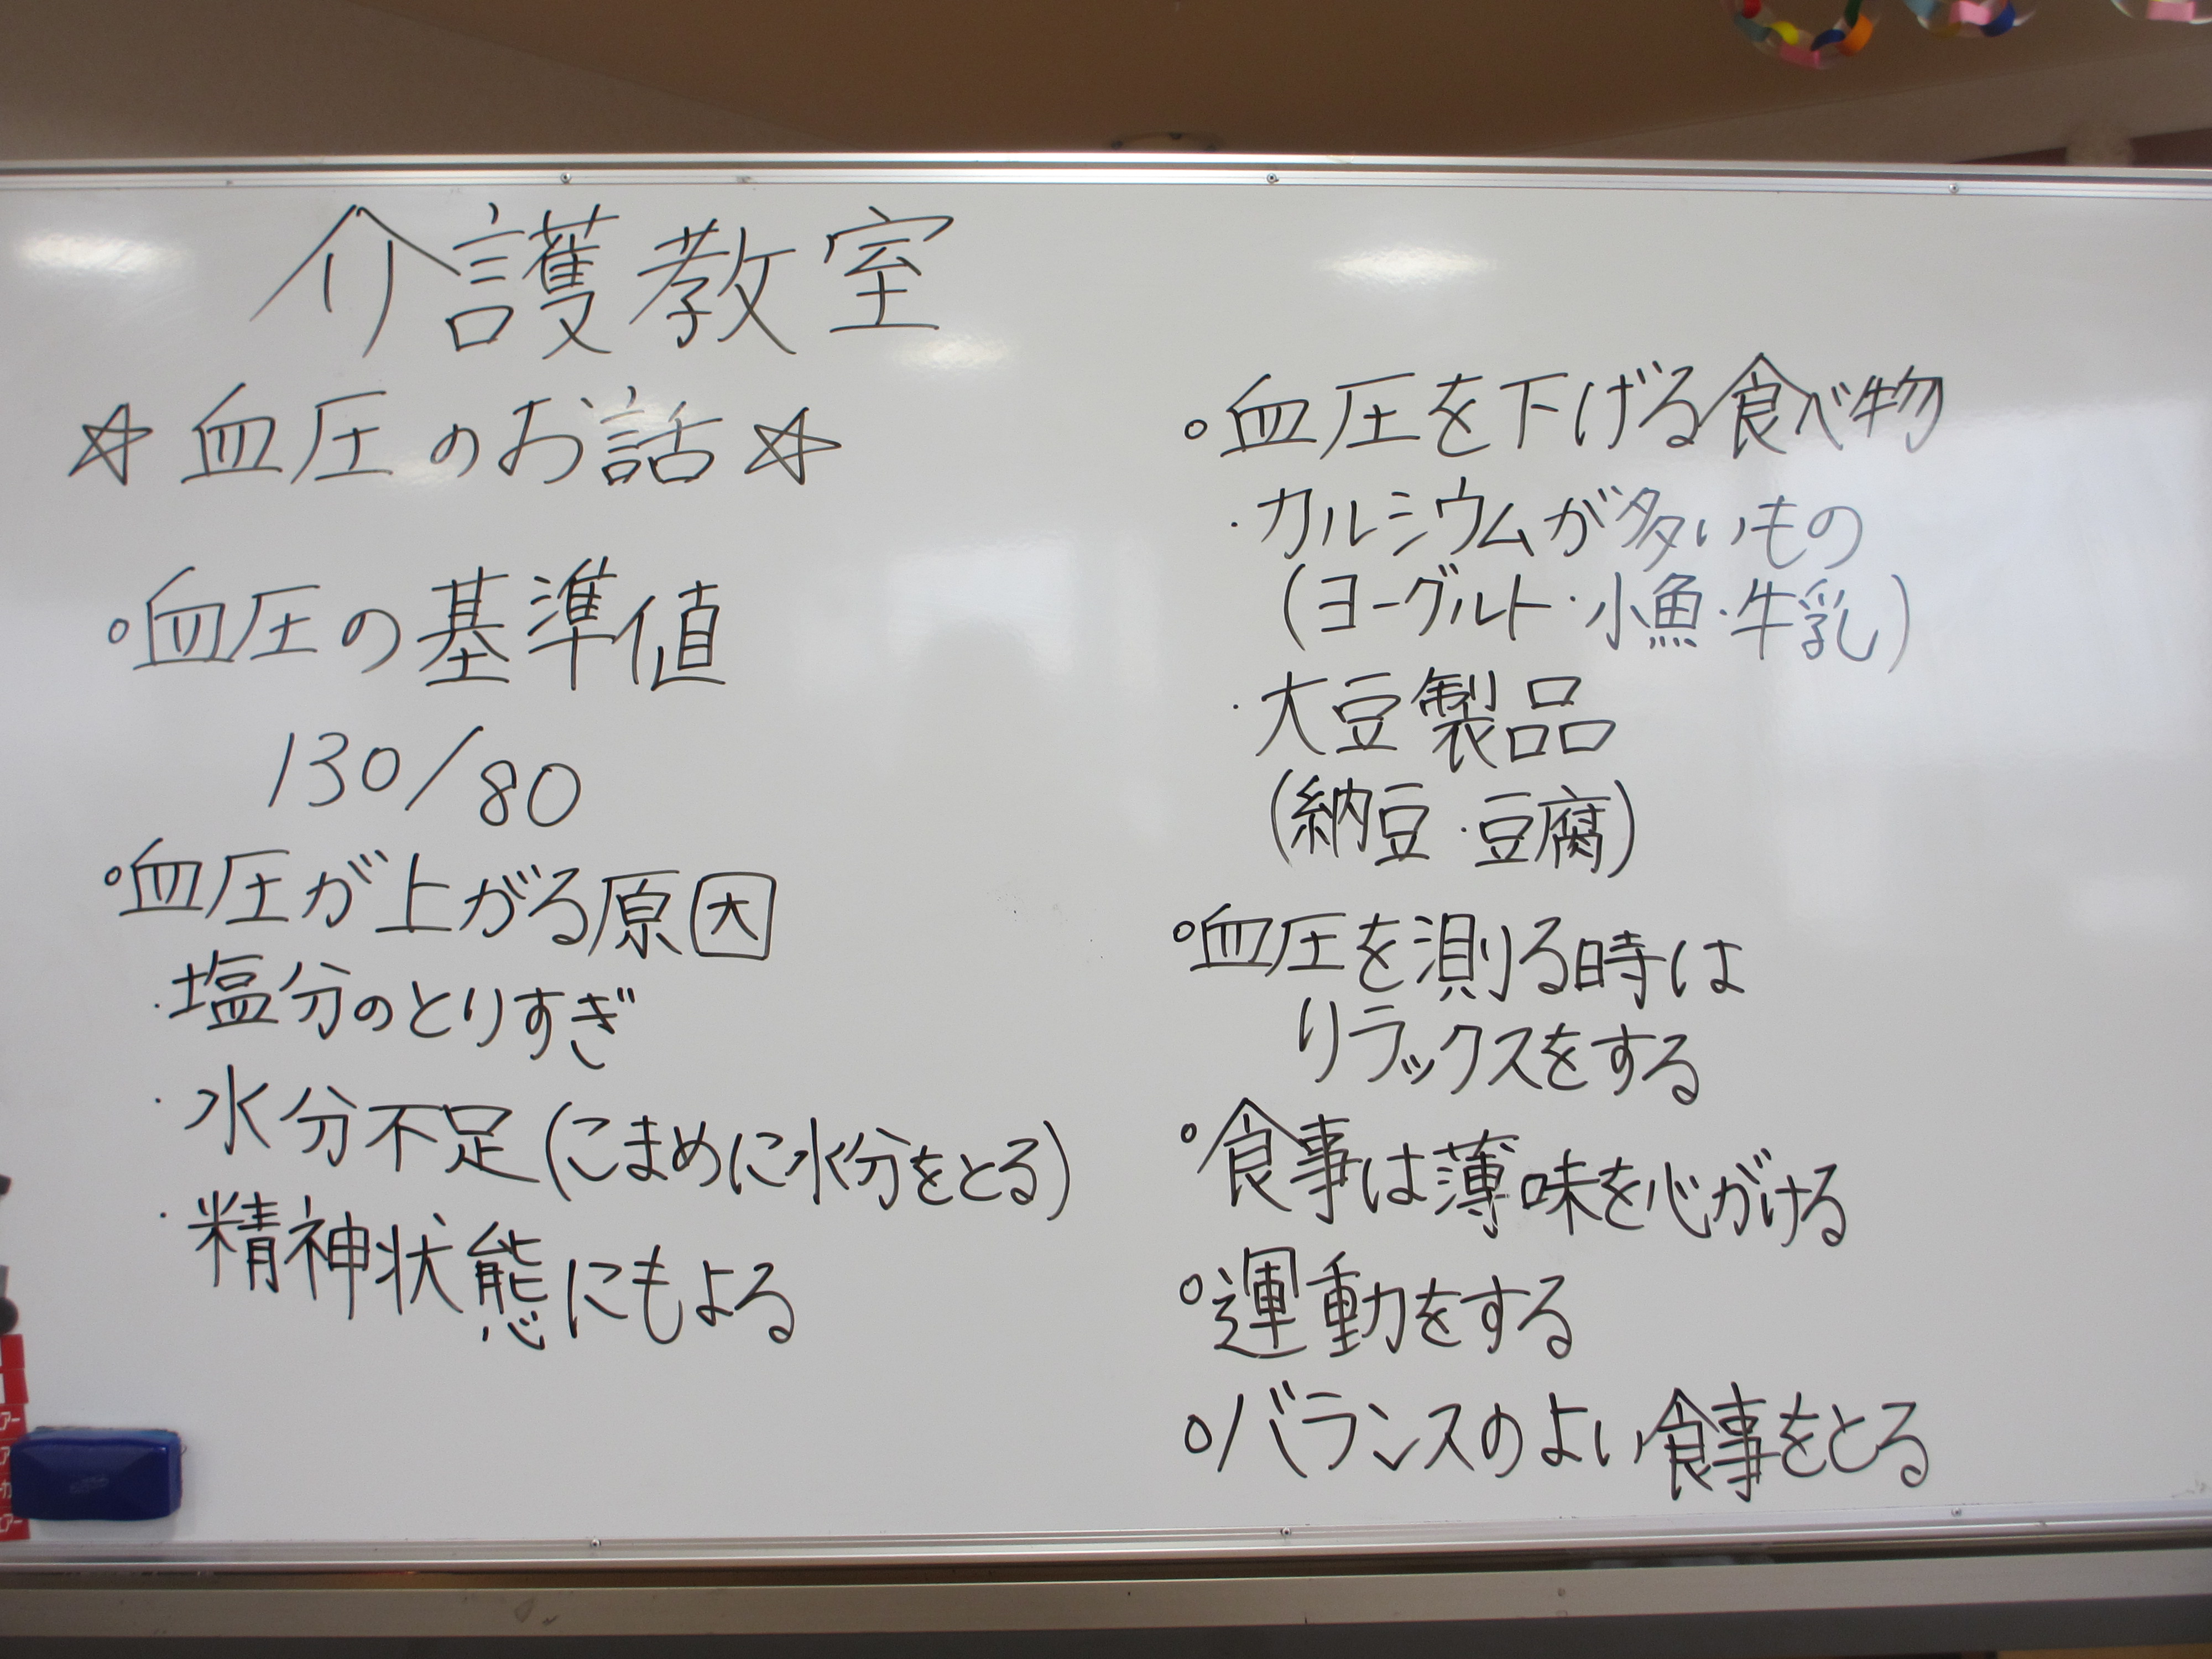 介護教室
☆血圧のお話☆
○血圧の基準値
130/80
○血圧が上がる原因
・塩分のとりすぎ
・水分不足(こまめに水分をとる)
・精神状態にもよる
○血圧を下げる食べ物
・カルシウムが多いもの
(ヨーグルト・小魚・牛乳)
・大豆製品
(納豆・豆腐)
○血圧を測る時は
リラックスをする
○食事は薄味を心がける
○運動をする
○バランスのよい食事をとる